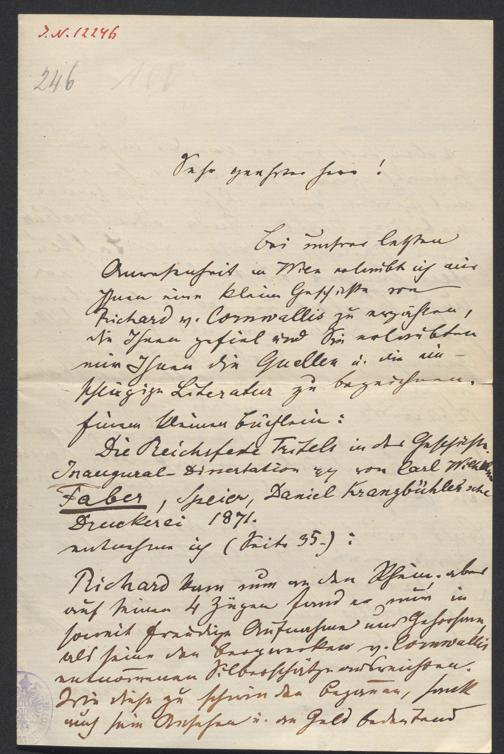 J.N. 12246
246
Sehr geehrter Herr!
Bei meiner letzten
Anwesenheit in Wien erlaubte ich mir
Ihnen eine kleine Geschichte von
Richard v. Cornwallis zu erzählen,
die Ihnen gefiel und Sie erlaubten
mir Ihnen die Quellen u. die ein-
schlägige Literatur zu bezeichnen.
Einem kleinen Büchlein:
Die Reichsfeste Trifels in der Geschichte.
Inaugural-Dissertation von Carl Wilhelm
Faber, Speier, Daniel Kranzbühler'sche
Druckerei 1871.
entnehme ich (Seite 35.):
Richard kam nun an den Rhein. aber
auf seinen 4 Zügen fand er nur in
soweit freudige Aufnahme und Gehorsam,
als seine den Bergwerken v. Cornwallis
entnommenen Silberschätze ausreichten.
Wie diese zu schwinden begannen, sank
auch sein Ansehen u. an Geld bedeutend